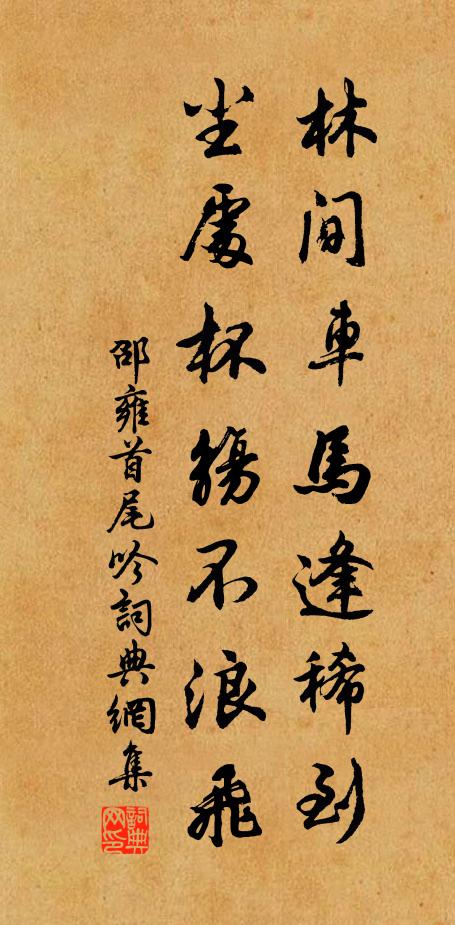 林間車馬逢稀到
坐處杯觴不浪飛
邵雍首尾吟詞典網集
詞典網印